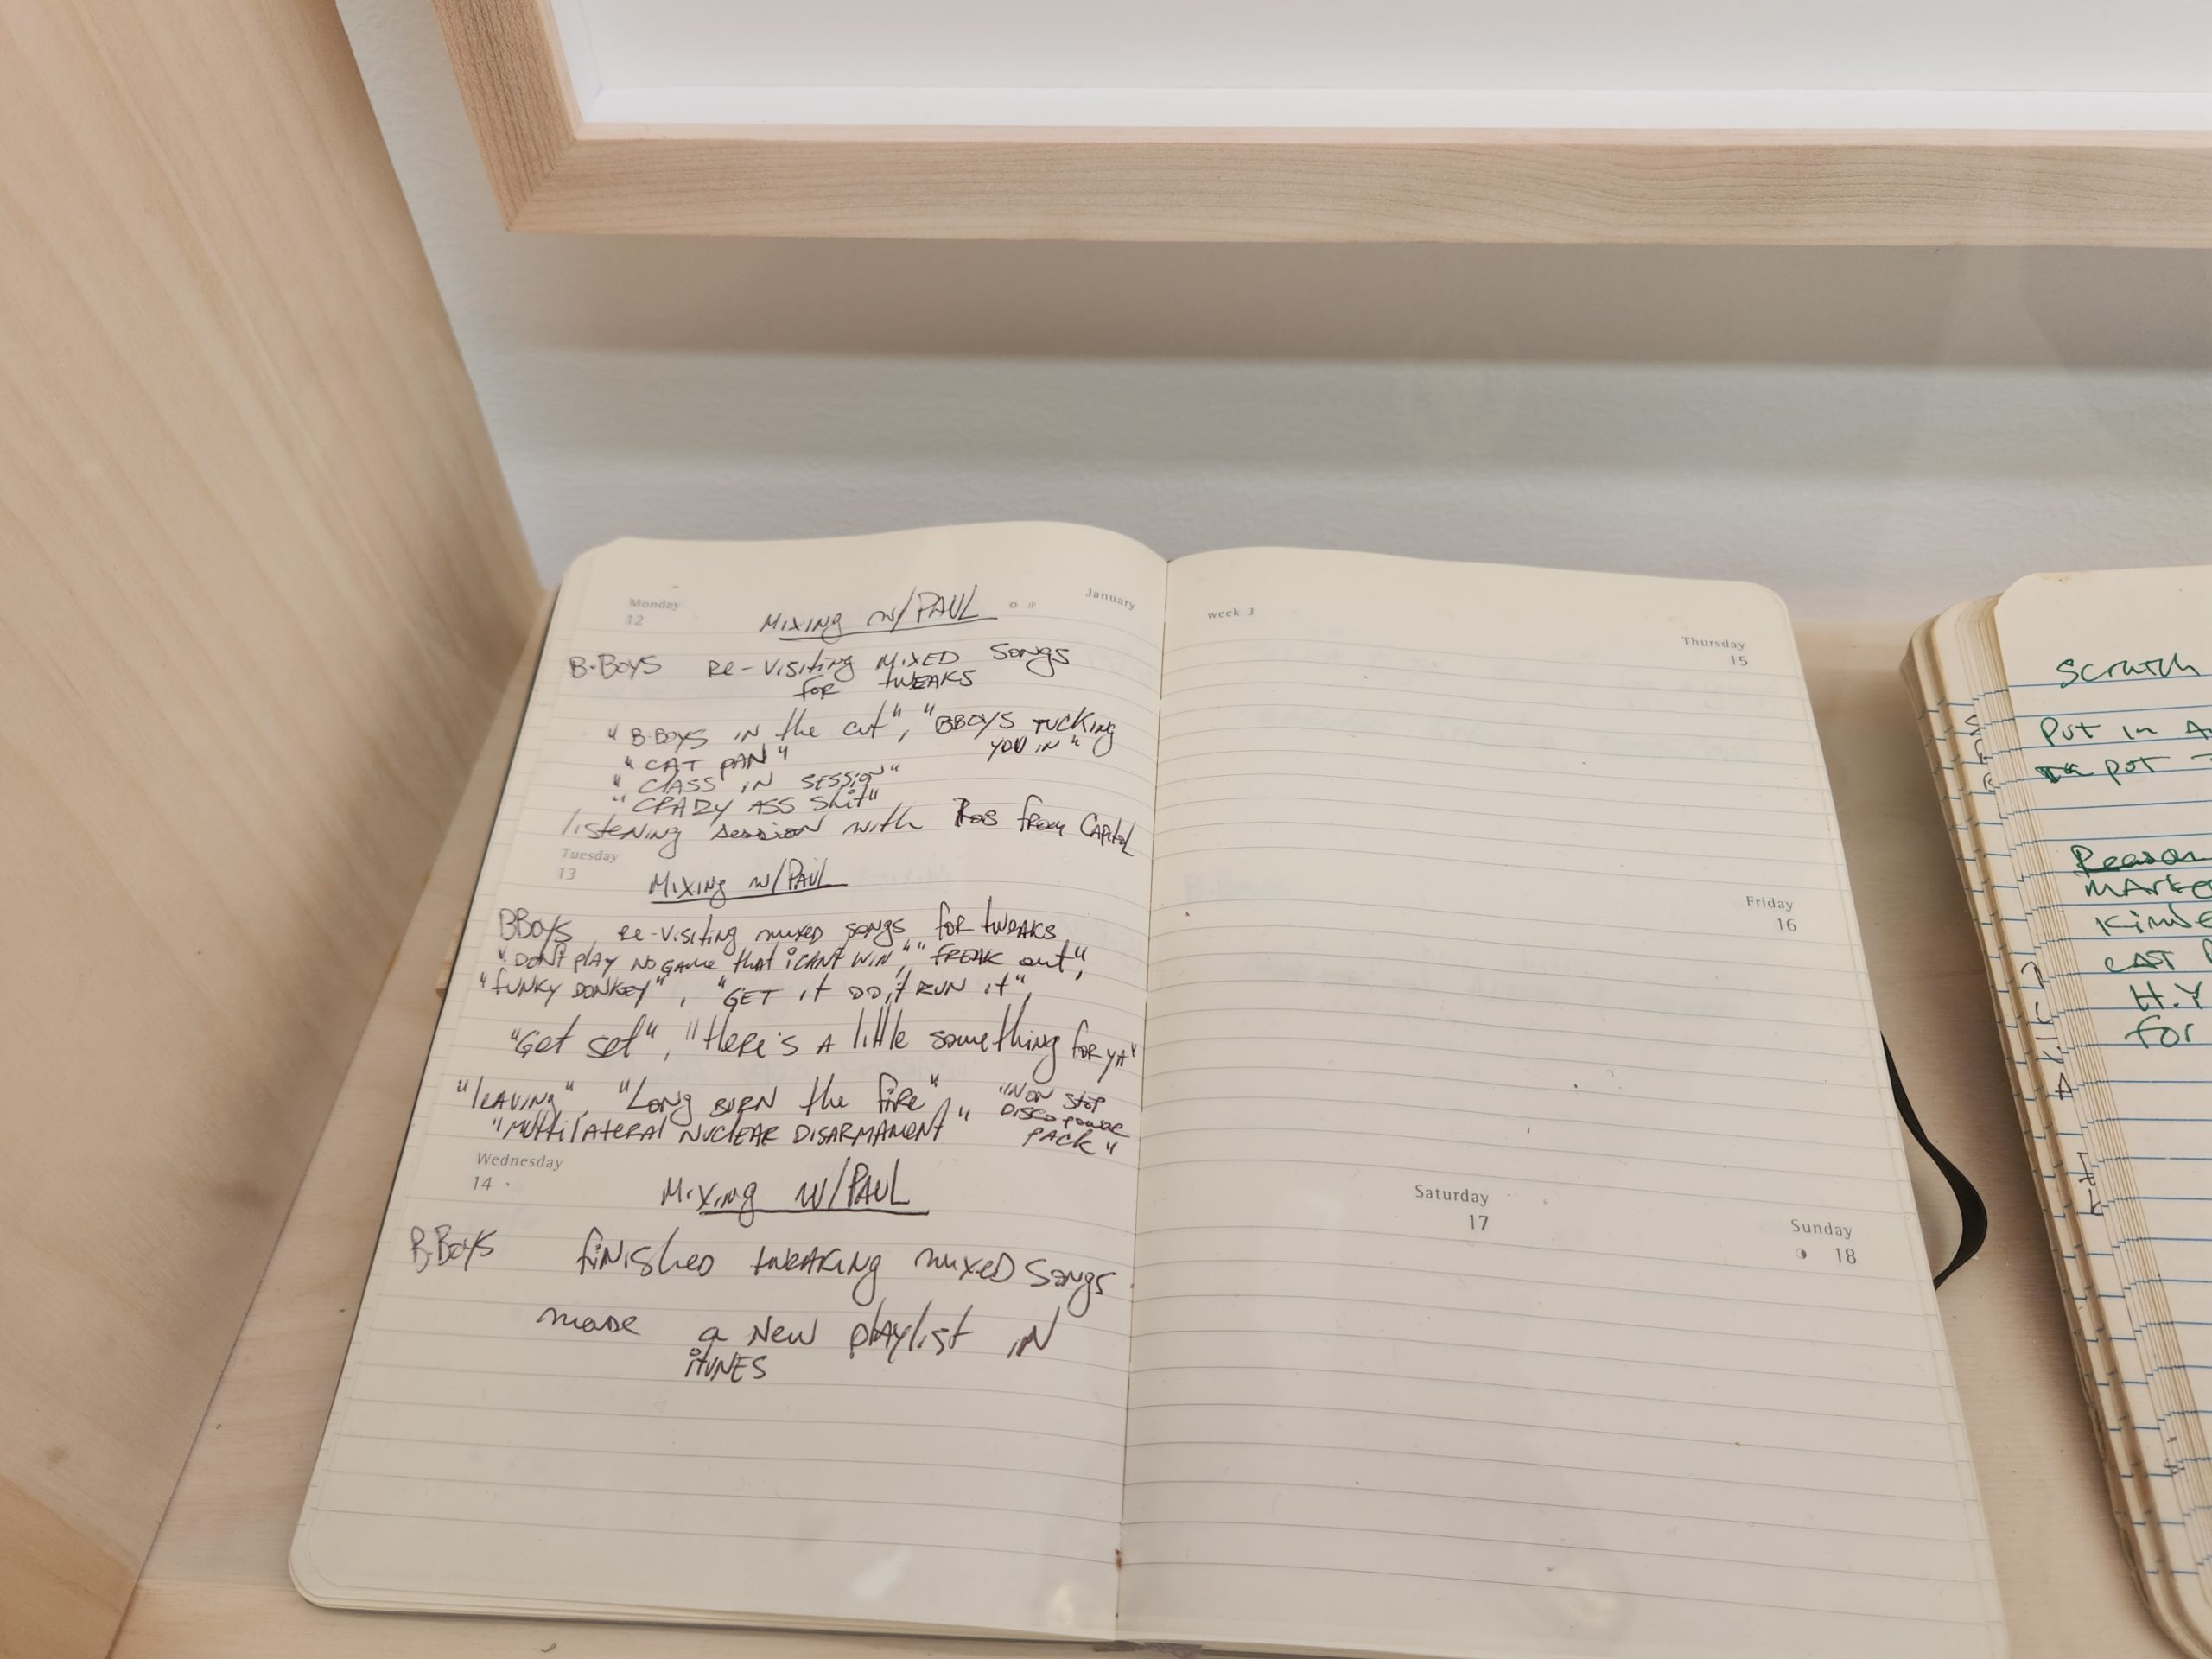 Monday
12
January
Mixing w/PAUL
B-Boys Re-visiting Mixed Songs
for tweaks
"B-Boys in the cut", "BBoys tucking
you in"
"CAT PAN"
"CLASS IN SESSION"
"CRAZY ASS Shit"
listening session with from Capitol
Tuesday
13
Mixing w/PAUL
BBoys Re-visiting mixed songs for tweaks
"Dont play no game that i cant win", "FREAK out",
"funky Donkey", "GET it DO it RUN it",
"Get set", "Here's a little something for ya"
"leaving", "Long Burn the fire" "Non stop
Disco power
pack"
"Multilateral Nuclear Disarmament"
Wednesday
14
Mixing w/PAUL
B-Boys finished tweaking mixed songs
made a New playlist in
iTUNES
week 3
Thursday
15
Friday
16
Saturday
17
Sunday
18
Scratch
Put in
put
Reason